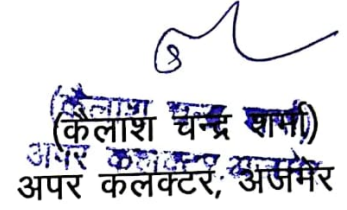 (कैलाश चन्द्र शर्मा)
अपर कलक्टर, अजमेर